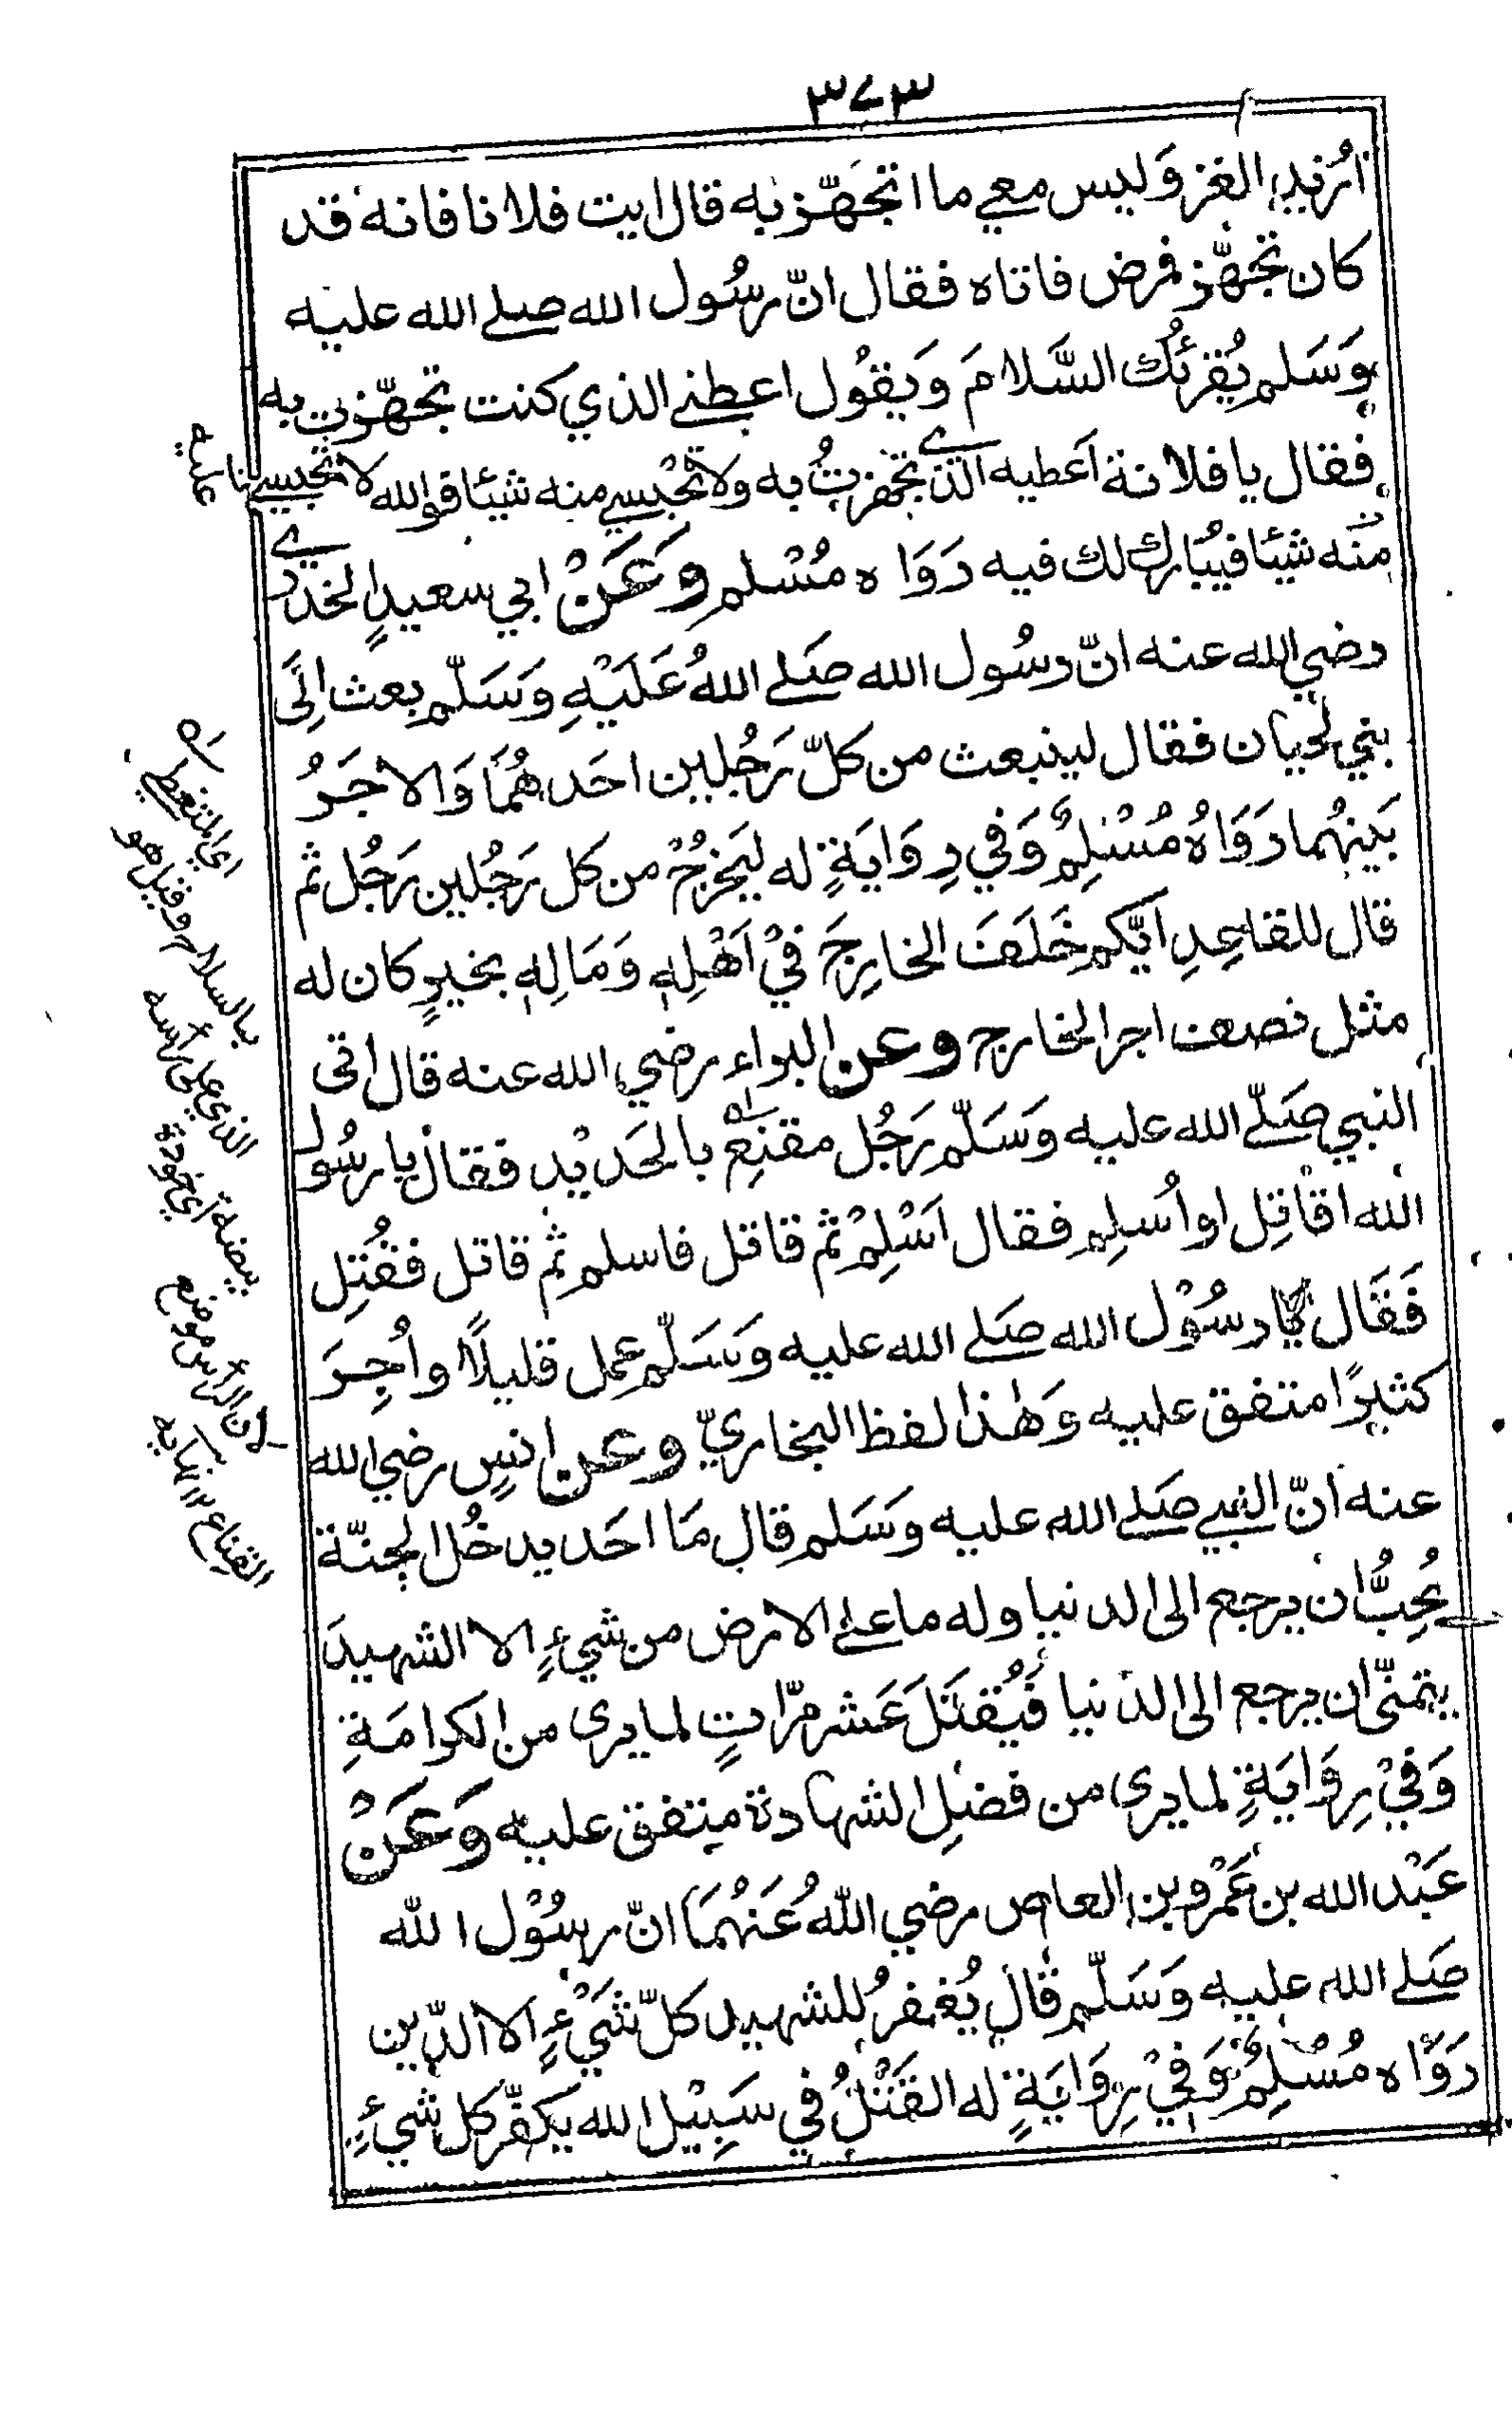 ٣٧٣
اُريد الغزو وَليس معي ما اتجهّز به قال ايت فلانا فانه قد
كان تجهّز فمرض فاتاه فقال انّ رسُول الله صلى الله عليه
وَسَلم يُقرئك السَّلامَ وَيقُول اعطني الذي كنت تجهّزت به
فقال يا فلانة اَعطيه الذي تجهزتُ به ولا تحْبسي منه شيئا فوالله لا تحبسي
منه شيئا فيُبارك لك فيه رَوَاه مُسْلم وَعَنْ ابي سعيدٍ الخدري
رضي الله عنه انّ رسُول الله صَلى اللهُ عَلَيْهِ وَسَلّم بعث اِلَى
بني لحيان فقال لينبعث من كلّ رَجُلين احَدهُمَا وَالاجَرُ
بَينهُما رَوَاهُ مُسْلِمٌ وَفي رِوَايَةٍ له ليَخرُجْ من كل رَجُلين رَجُل ثم
قال للقاعِدِ اَيّكم خَلَفَ الخارِجَ فيْ اَهْلِهٖ وَمَالِهٖ بخيرٍ كان له
مثل نصف اجر الخارج وعن البراء رضي الله عنه قال اتى
النبي صَلّى الله عليه وَسَلّم رَجُل مقنع بالحَديْد فقال يا رسُول
الله اقاتِل او اُسْلِم فقال اَسْلِمْ ثم قاتل فاسلم ثم قاتل فقُتِل
فَقَال رسُوْل الله صَلى الله عليه وَسَلّم عمل قليلًا واُجِرَ
كثيرًا متفق عليه وَهٰذا لفظ البخاريّ وعن انسٍ رضي الله
عنه انّ النبي صَلى الله عليه وَسَلم قال مَا احَد يدخُل الجنّة
يُحِبُّ ان يرجع الى الدنيا وله ما على الارض من شيءٍ الا الشهيدَ
يتمنّى ان يرجع الى الدنيا فَيُقتَلَ عَشر مرّاتٍ لما يرى من الكرامَةِ
وَفيْ رِوَايَةٍ لما يرى من فضلِ الشهادة متفق عليه وَعَنْ
عَبْد الله بن عَمْرو بن العاص رضي اللهُ عَنْهُمَا انّ رسُوْل الله
صَلى الله عليه وَسَلّم قال يُغفرُ للشهيد كلّ شَيْءٍ الا الدّين
رَوَاه مُسْلِمٌ وَفيْ رِوَايَةٍ له القَتْلُ في سَبِيْل الله يكفّر كل شيءٍ
اي المتغطي
بالسلاح وقيل هو
الذي على رأسه
بيضة اي خوذة
لان الرأس موضع
القناع نهايه